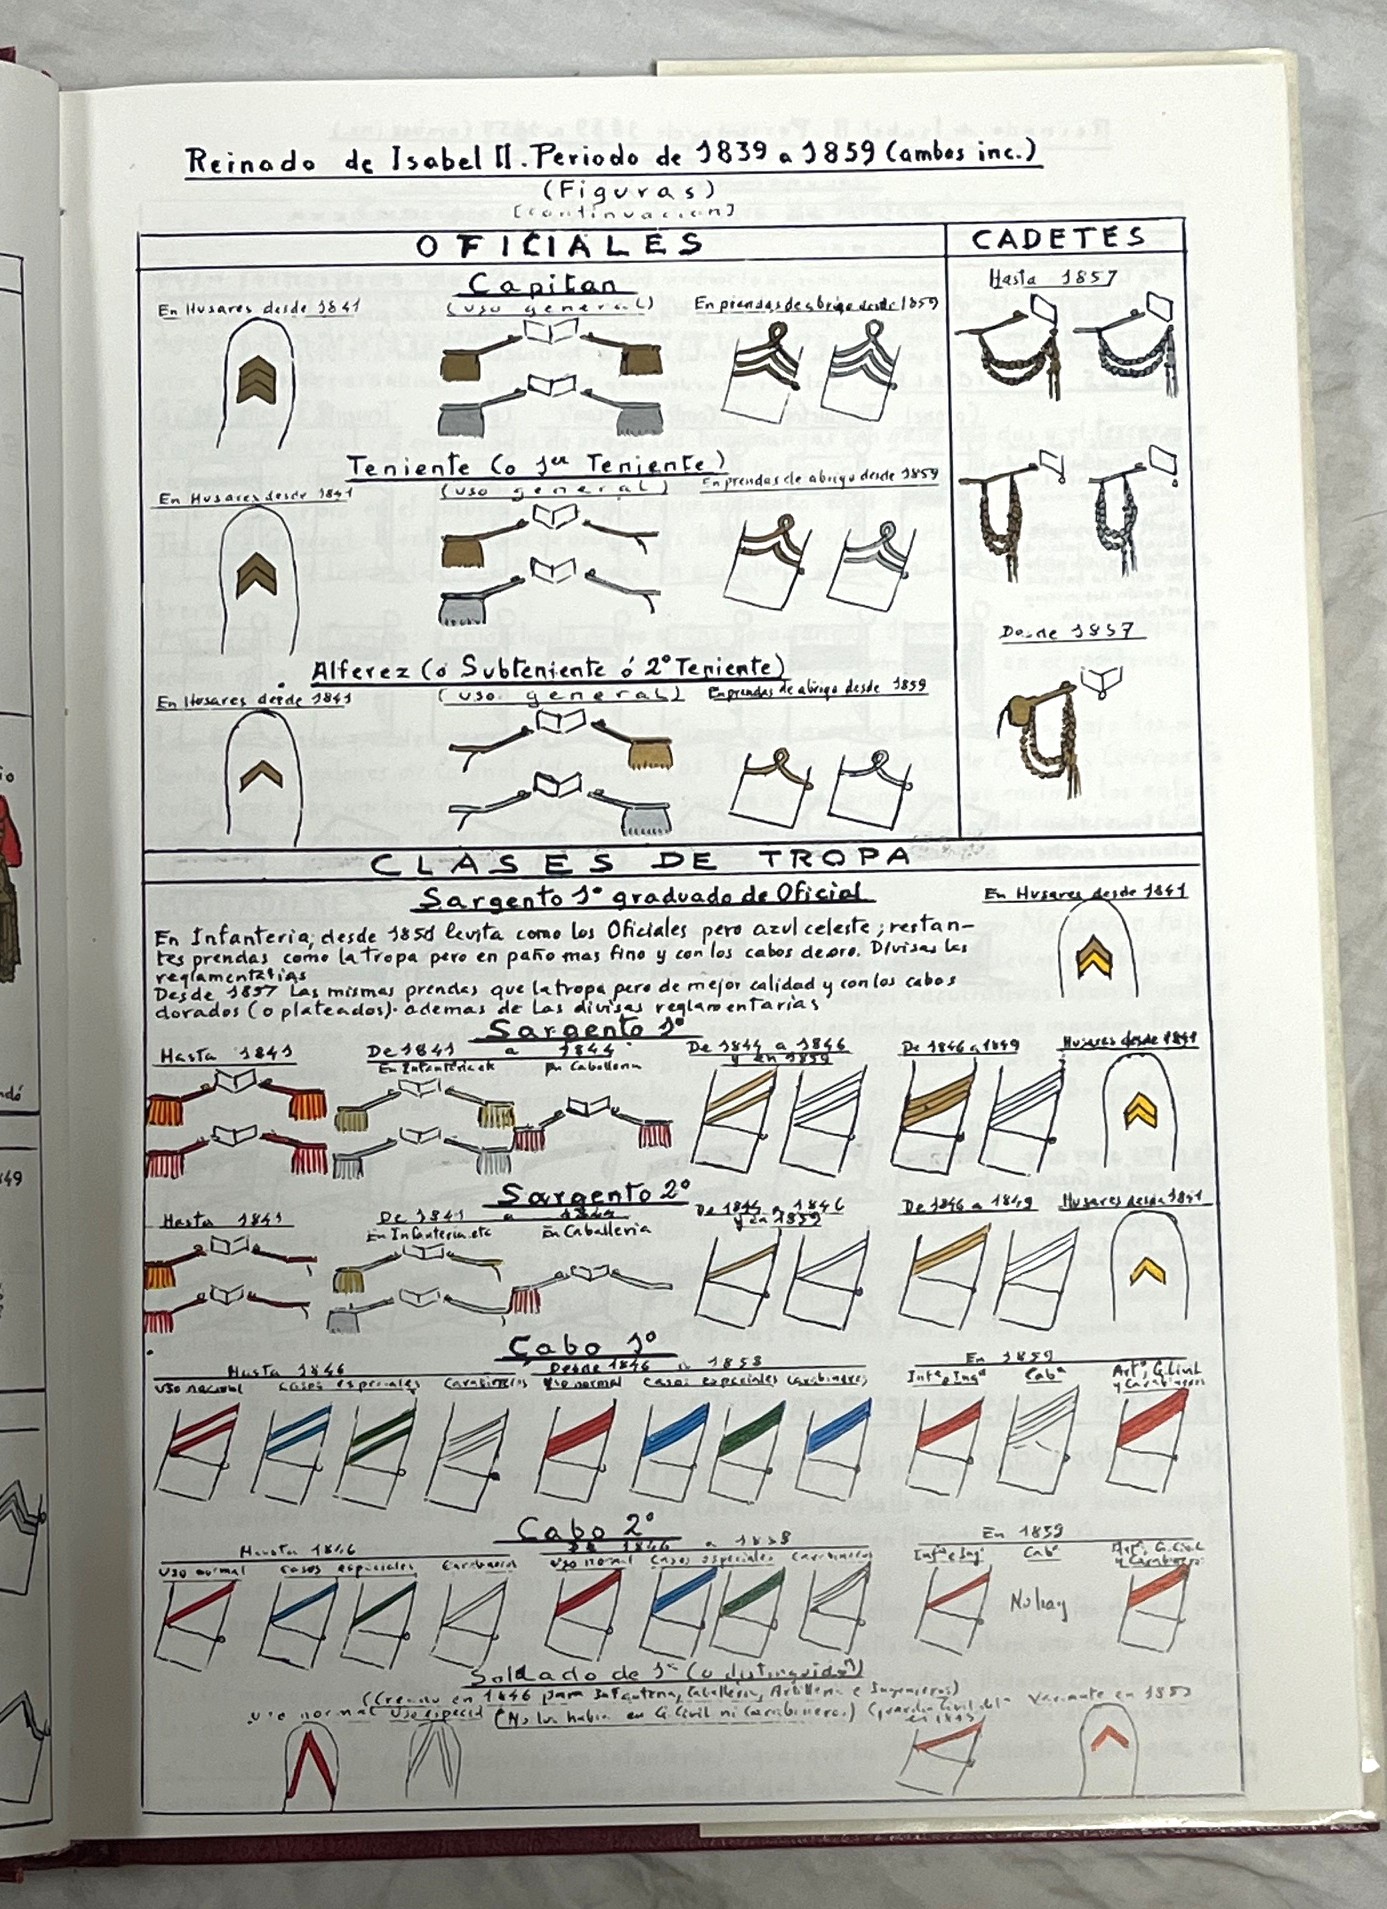 Reinado de Isabel II. Periodo de 1839 a 1859 (ambos inc.)
(Figuras)
[continuacion]
OFICIALES
CADETES
Capitan
Hasta 1857
En Husares desde 1841
(uso general)
En prendas de abrigo desde 1859
Teniente (o 1er Teniente)
En Husares desde 1841
(uso general)
En prendas de abrigo desde 1859
Desde 1857
Alferez (o Subteniente ó 2º Teniente)
En Husares desde 1841
(uso general)
En prendas de abrigo desde 1859
CLASES DE TROPA
Sargento 1º graduado de Oficial
En Husares desde 1841
En Infanteria, desde 1850 levita como los Oficiales pero azul celeste; restan-
tes prendas como la tropa pero en paño mas fino y con los cabos de oro. Divisas las
reglamentarias
Desde 1857 las mismas prendas que la tropa pero de mejor calidad y con los cabos
dorados (o plateados). ademas de las divisas reglamentarias
Sargento 1º
Hasta 1841
De 1841 a 1844
En Infanteria etc
En Caballeria
De 1844 a 1846
y en 1859
De 1846 a 1849
Husares desde 1841
Sargento 2º
Hasta 1841
De 1841 a 1844
En Infanteria etc
En Caballeria
De 1844 a 1846
y en 1859
De 1846 a 1849
Husares desde 1841
Cabo 1º
Hasta 1846
Desde 1846 a 1858
En 1859
Uso normal
Casos especiales
Carabineros
Uso normal
Casos especiales
Carabineros
Infª e Ingª
Cabª
Artª, G. Civil
y Carabineros
Cabo 2º
Hasta 1846
De 1846 a 1858
En 1859
Uso normal
Casos especiales
Carabineros
Uso normal
Casos especiales
Carabineros
Infª e Ingª
Cabª
Artª, G. Civil
y Carabineros
No hay
Soldado de 1ª (o distinguido)
(Creado en 1846 para Infanteria, Caballeria, Artilleria e Ingenieros)
Uso normal
Uso especial
(No los habia en G. Civil ni Carabineros)
Variante en